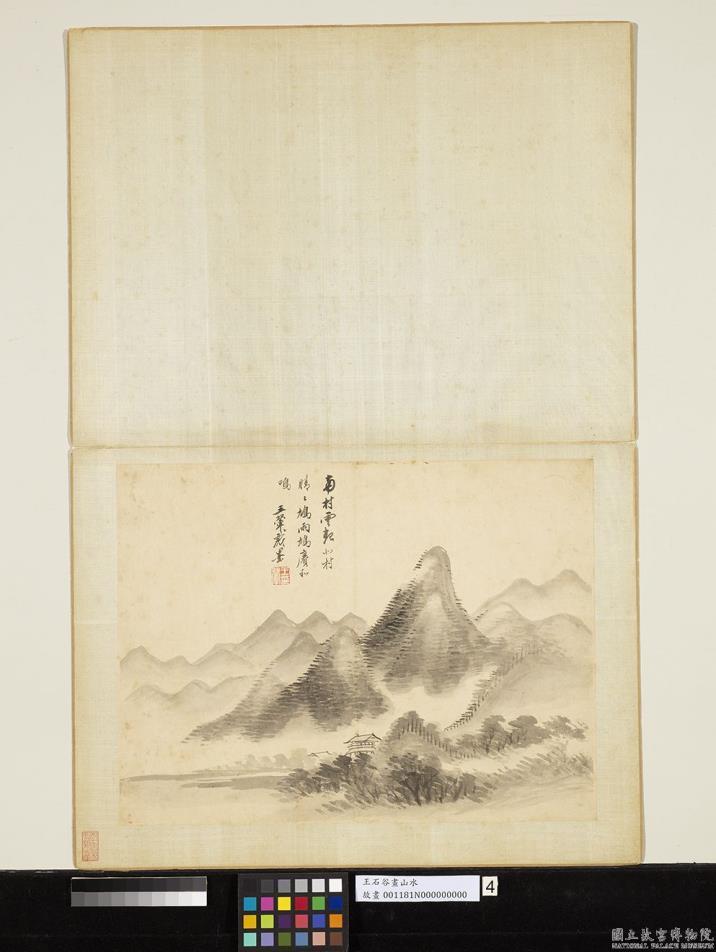 南村雲起北村
晴晴鳩雨鳩廣和
鳴
王翬戲畫
王石谷畫山水
故畫 001181N000000000
4
國立故宮博物院
NATIONAL PALACE MUSEUM